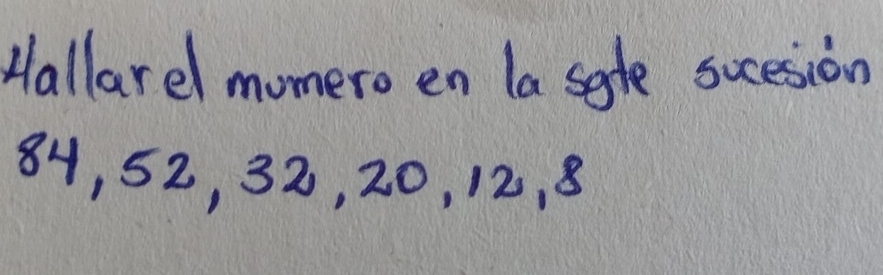 Hallar el mumero en la sgte sucesión
84, 52, 32, 20, 12, 8